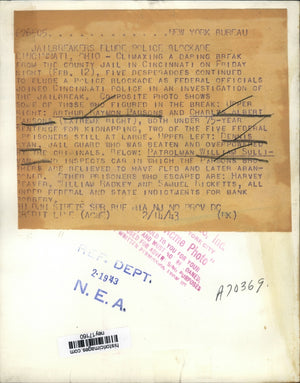 NEW YORK BUREAU
JAILBREAKERS ELUDE POLICE BLOCKADE
CINCINNATI, OHIO - CLIMAXING A DARING BREAK
FROM THE COUNTY JAIL IN CINCINNATI ON FRIDAY
NIGHT (FEB. 12), FIVE DESPERADOES CONTINUED
TO ELUDE A POLICE BLOCKADE AS FEDERAL OFFICIALS
JOINED CINCINNATI POLICE IN AN INVESTIGATION OF
THE JAILBREAK. COMPOSITE PHOTO SHOWS
SOME OF THOSE WHO FIGURED IN THE BREAK: UPPER
RIGHT: ARTHUR AND CHARLES ALBERT
(FAR RIGHT), BOTH UNDER 75-YEAR
SENTENCE FOR KIDNAPPING, TWO OF THE FIVE FEDERAL
PRISONERS STILL AT LARGE. UPPER LEFT: DENNIS
JAIL GUARD WHO WAS BEATEN AND
BY CRIMINALS. BELOW: PATROLMAN WILLIAM
INSPECTS CAR IN WHICH THE AND
ARE BELIEVED TO HAVE FLED AND LATER
OTHER PRISONERS WHO ESCAPED ARE: HARVEY
WILLIAM HACKEY AND SAMUEL RICKETTS, ALL
UNDER FEDERAL AND STATE INDICTMENTS FOR BANK
ROBBERY.
BUF
CREDIT LINE (ACME) 2/14/43 (BK)
Inc.
"Acme Photo"
REF. DEPT.
2-1943
N.E.A.
A70369.
historicimages.com
ney17160